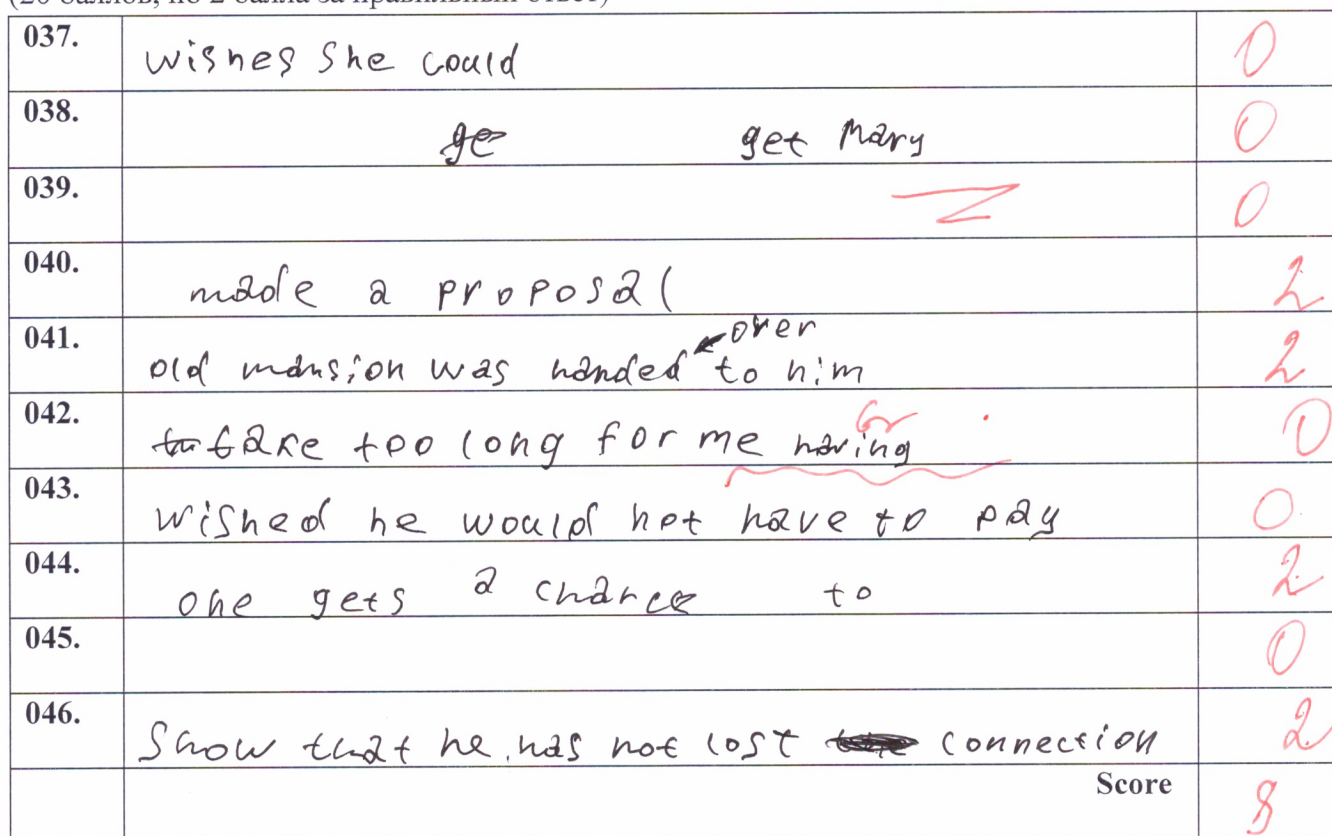 (20 баллов, по 2 балла за правильный ответ)
037. wishes she could 0
038. ge get Mary 0
039. Z 0
040. made a proposal 2
over
041. old mansion was handed to him 2
Gr
042. take too long for me having 0
043. wished he would not have to pay 0
044. one gets a chance to 2
045. 0
046. Show that he has not lost connection 2
Score 8